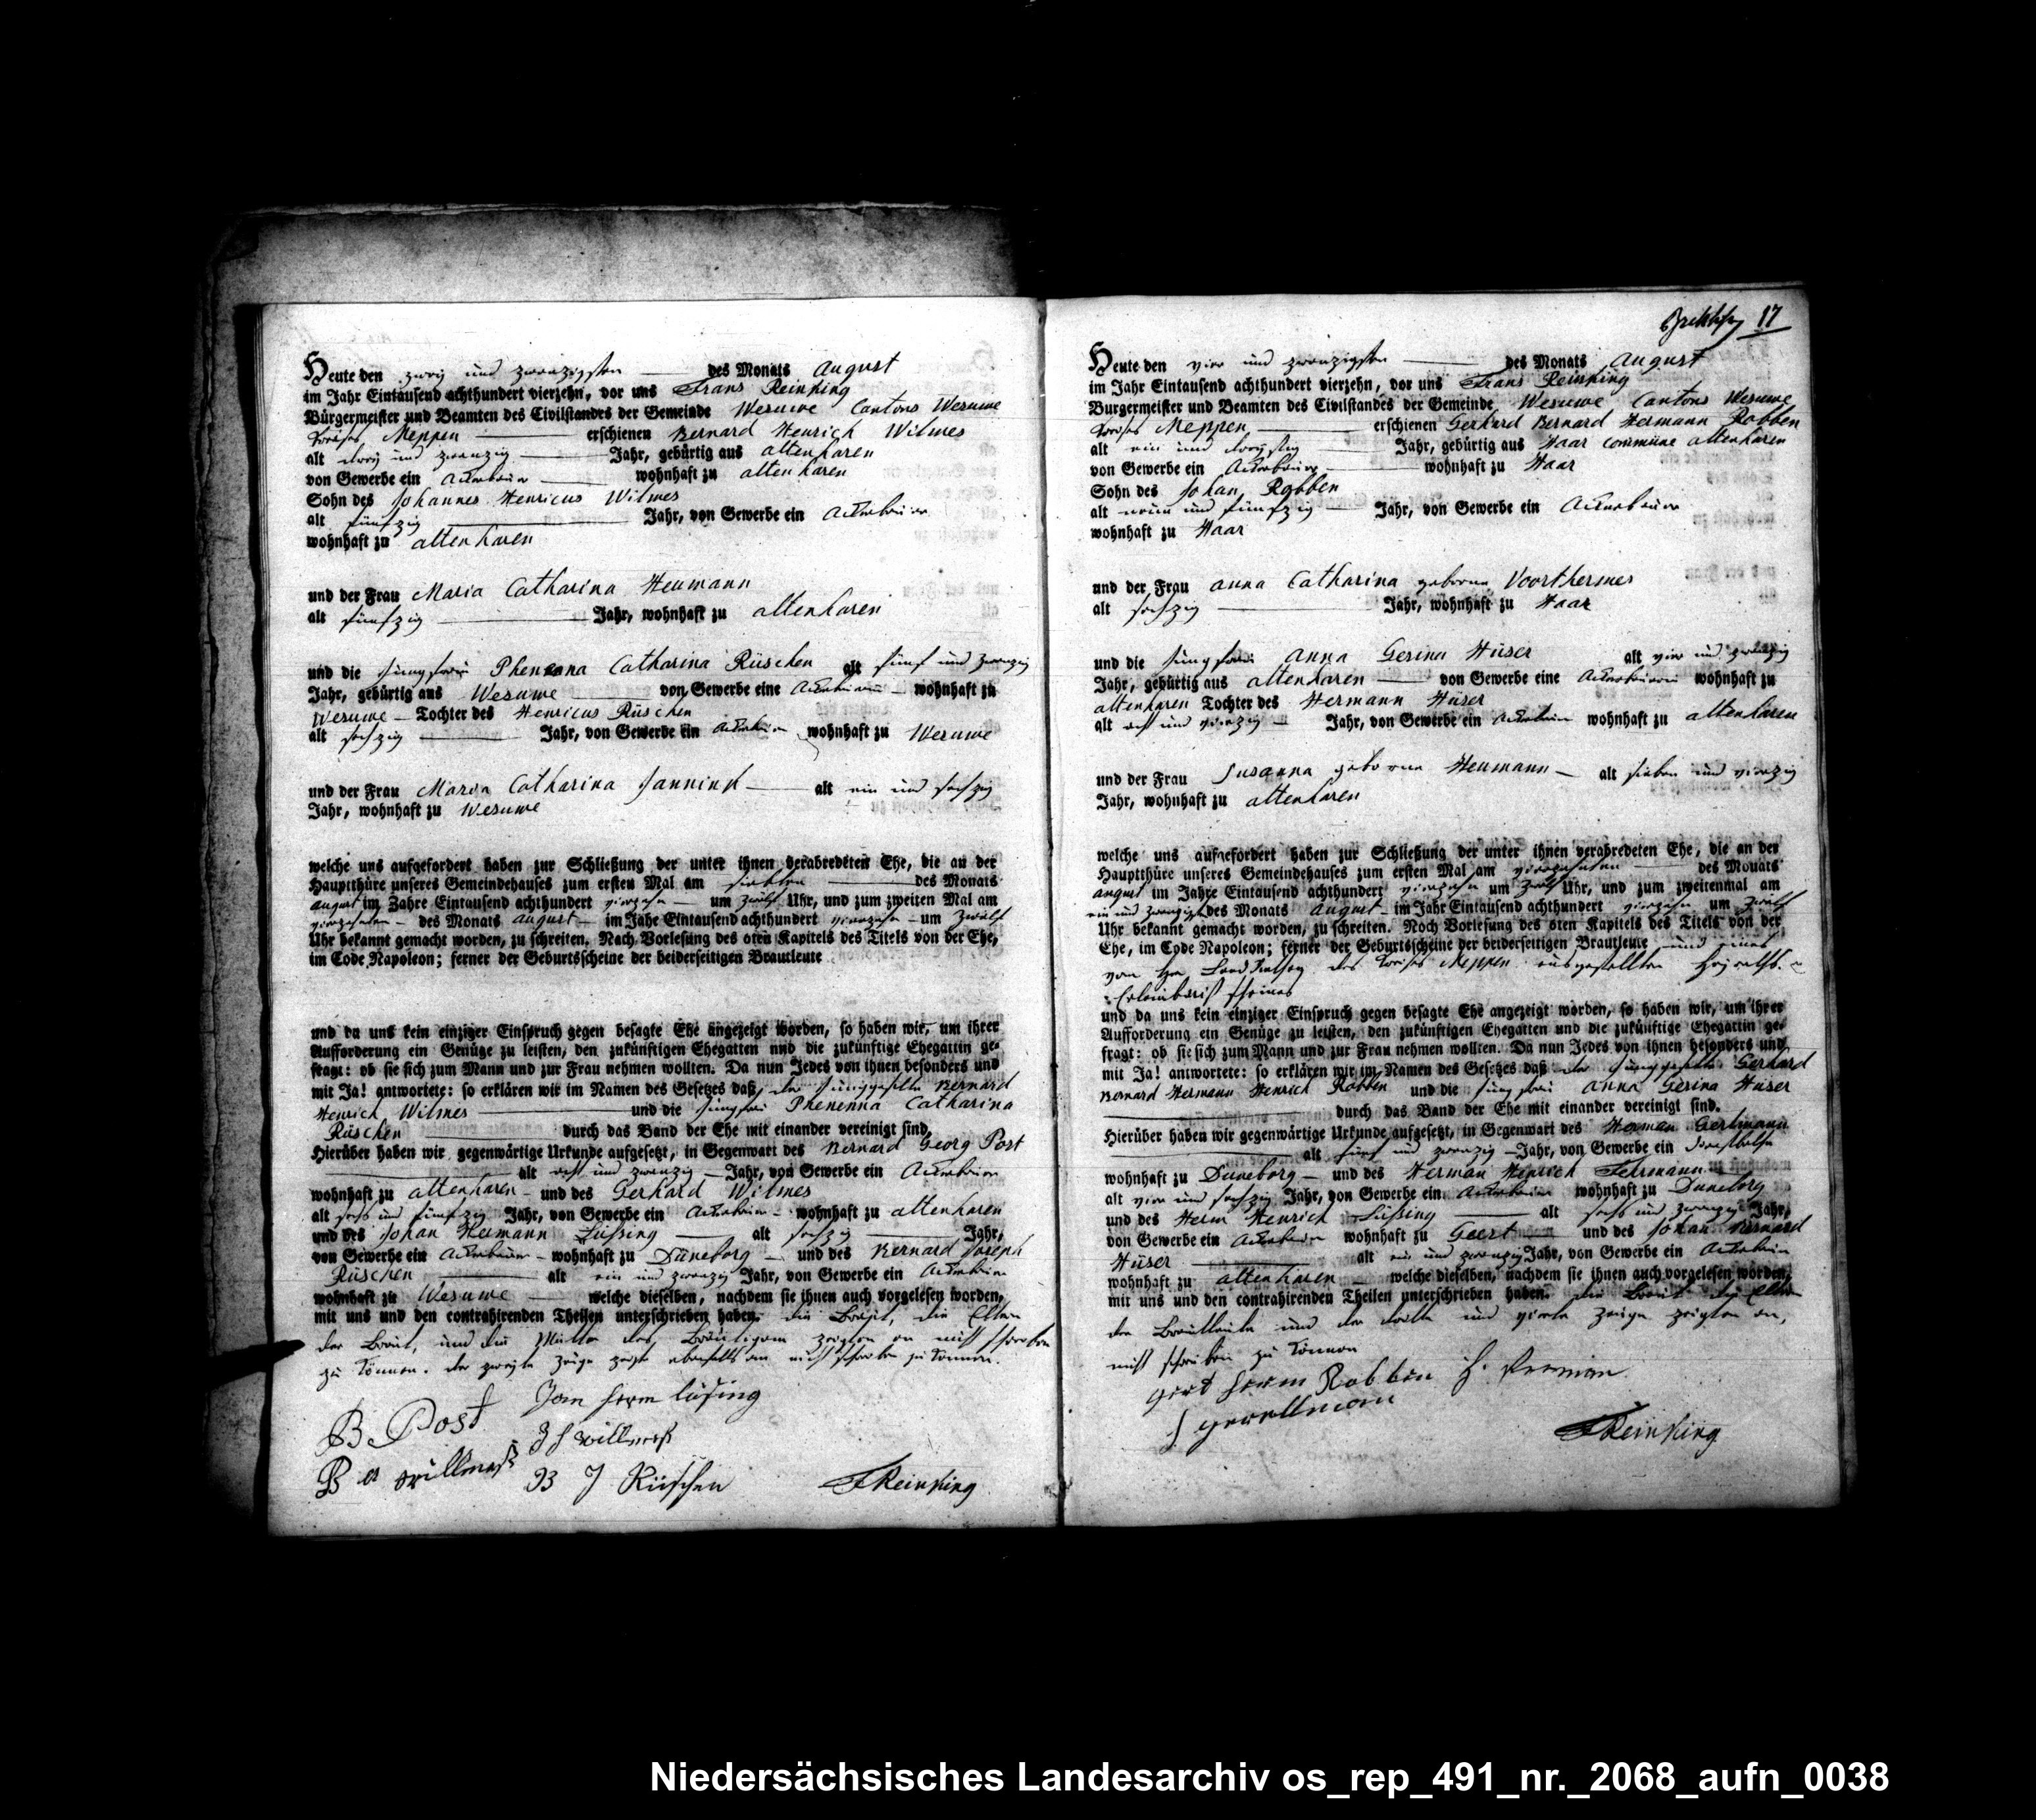 Heute den zweij und zwanzigsten des Monats August
im Jahr Eintausend achthundert vierzehn, vor uns Frans Reinking
Bürgermeister und Beamten des Civilstandes der Gemeinde Wesuwe Cantons Wesuwe
Kreises Meppen erschienen Bernard Henrich Wilmes
alt dreij und zwanzig Jahr, gebürtig aus altenharen
von Gewerbe ein Ackerbauer wohnhaft zu altenharen
Sohn des Johannes Henricus Wilmes
alt fünfzig Jahr, von Gewerbe ein Ackerbauer
wohnhaft zu altenharen
und der Frau Maria Catharina Heumann
alt fünfzig Jahr, wohnhaft zu altenharen
und die Jungfrau Phenenna Catharina Rüschen alt fünf und zwanzig
Jahr, gebürtig aus Wesuwe von Gewerbe eine Ackerbäuerin wohnhaft zu
Wesuwe Tochter des Henricus Rüschen
alt sechzig Jahr, von Gewerbe ein Ackerbauer wohnhaft zu Wesuwe
und der Frau Maria Catharina Jannink alt ein und sechzig
Jahr, wohnhaft zu Wesuwe
welche uns aufgefordert haben zur Schließung der unter ihnen verabredeten Ehe, die an der
Hauptthüre unseres Gemeindehauses zum ersten Mal am siebten des Monats
august im Jahre Eintausend achthundert vierzehn um zwölf Uhr, und zum zweiten Mal am
vierzehnten des Monats august im Jahe Eintausend achthundert vierzehn um zwölf
Uhr bekannt gemacht worden, zu schreiten. Nach Vorlesung des 6ten Kapitels des Titels von der Ehe,
im Code Napoleon; ferner der Geburtsscheine der beiderseitigen Brautleute
und da uns kein einziger Einspruch gegen besagte Ehe angezeigt worden, so haben wir, um ihrer
Aufforderung ein Genüge zu leisten, den zukünftigen Ehegatten und die zukünftige Ehegattin ge-
fragt: ob sie sich zum Mann und zur Frau nehmen wollten. Da nun Jedes von ihnen besonders und
mit Ja! antwortete: so erklären wir im Namen des Gesetzes daß, der Junggeselle Bernard
Henrich Wilmes und die Jungfrau Phenenna Catharina
Rüschen durch das Band der Ehe mit einander vereinigt sind.
Hierüber haben wir gegenwärtige Urkunde aufgesetzt, in Gegenwart des Bernard Georg Post
alt acht und zwanzig Jahr, von Gewerbe ein Ackerbauer
wohnhaft zu altenharen und des Gerhard Wilmes
alt sechs und fünfzig Jahr, von Gewerbe ein Ackerbauer wohnhaft zu altenharen
und des Johan Hermann Lüssing alt sechzig Jahr,
von Gewerbe ein Ackerbauer wohnhaft zu Düneborg und des Bernard Joseph
Rüschen alt ein und zwanzig Jahr, von Gewerbe ein Ackerbauer
wohnhaft zu Wesuwe welche dieselben, nachdem sie ihnen auch vorgelesen worden,
mit uns und den contrahirenden Theilen unterschrieben haben. die Braut, die Eltern
der Braut, und die Mutter des Bräutigam zeigten an nicht schreiben
zu können. der zweite Zeuge zeigte ebenfalls an nicht schreiben zu können.
B Post Jan herm lüsing
J H willmess
B H willmess B J Rüschen FReinking
17
Heute den vier und zwanzigsten des Monats August
im Jahr Eintausend achthundert vierzehn, vor uns Frans Reinking
Burgermeister und Beamten des Civilstandes der Gemeinde Wesuwe Cantons Wesuwe
Kreises Meppen erschienen Gerhard Bernard Hermann Robben
alt ein und dreijsig Jahr, gebürtig aus Haar commune altenharen
von Gewerbe ein Ackerbauer wohnhaft zu Haar
Sohn des Johan Robben
alt neun und fünfzig Jahr, von Gewerbe ein Ackerbauer
wohnhaft zu Haar
und der Frau anna Catharina geborne Voorthermes
alt sechzig Jahr, wohnhaft zu Haar
und die Jungfrau Anna Gesina Hüser alt vier und zwanzig
Jahr, gebürtig aus altenharen von Gewerbe eine Ackerbäuerin wohnhaft zu
altenharen Tochter des Hermann Hüser
alt acht und vierzig Jahr, von Gewerbe ein Ackerbauer wohnhaft zu altenharen
und der Frau Susanna geborne Heumann alt sieben und vierzig
Jahr, wohnhaft zu altenharen
welche uns aufgefordert haben zur Schließung der unter ihnen verabredeten Ehe, die an der
Hauptthüre unseres Gemeindehauses zum ersten Mal am vierzehnten des Monats
august im Jahre Eintausend achthundert vierzehn um zwölf Uhr, und zum zweitenmal am
ein und zwanzigsten des Monats August im Jahr Eintausend achthundert vierzehn um zwölf
Uhr bekannt gemacht worden, zu schreiten. Noch Vorlesung des 6ten Kapitels des Titels von der
Ehe, im Code Napoleon; ferner der Geburtsscheine der beiderseitigen Brautleute und eines
vom des Kreises Meppen ausgestellten Heyraths-
Erlaubniß scheines
und da uns kein einziger Einspruch gegen besagte Ehe angezeigt worden, so haben wir, um ihrer
Aufforderung ein Genüge zu leisten, den zukünftigen Ehegatten und die zukünftige Ehegattin ge-
fragt: ob sie sich zum Mann und zur Frau nehmen wollten. Da nun Jedes von ihnen besonders und
mit Ja! antwortete: so erklären wir im Namen des Gesetzes daß der Junggeselle Gerhard
Bernard Hermann Henrich Robben und die Jungfrau anna Gesina Hüser
durch das Band der Ehe mit einander vereinigt sind.
Hierüber haben wir gegenwärtige Urkunde aufgesetzt, in Gegenwart des Herman Gerlmann
alt fünf und zwanzig Jahr, von Gewerbe ein
wohnhaft zu Duneborg und des Herman Henrich Fehrmann
alt vier und sechzig Jahr, von Gewerbe ein Ackerbauer wohnhaft zu Duneborg
und des Herm Henrich Lüssing alt sechs und zwanzig Jahr,
von Gewerbe ein Ackerbauer wohnhaft zu Geert und des Johan Bernard
Hüser alt ein und zwanzig Jahr, von Gewerbe ein Ackerbauer
wohnhaft zu altenharen welche dieselben, nachdem sie ihnen auch vorgelesen worden,
mit uns und den contrahirenden Theilen unterschrieben haben. die Braut die Eltern
der Brautleute und der dritte und vierte zeuge zeigten an,
nicht schreiben zu können
gert herm Robben
FReinking
Niedersächsisches Landesarchiv os_rep_491_nr._2068_aufn_0038